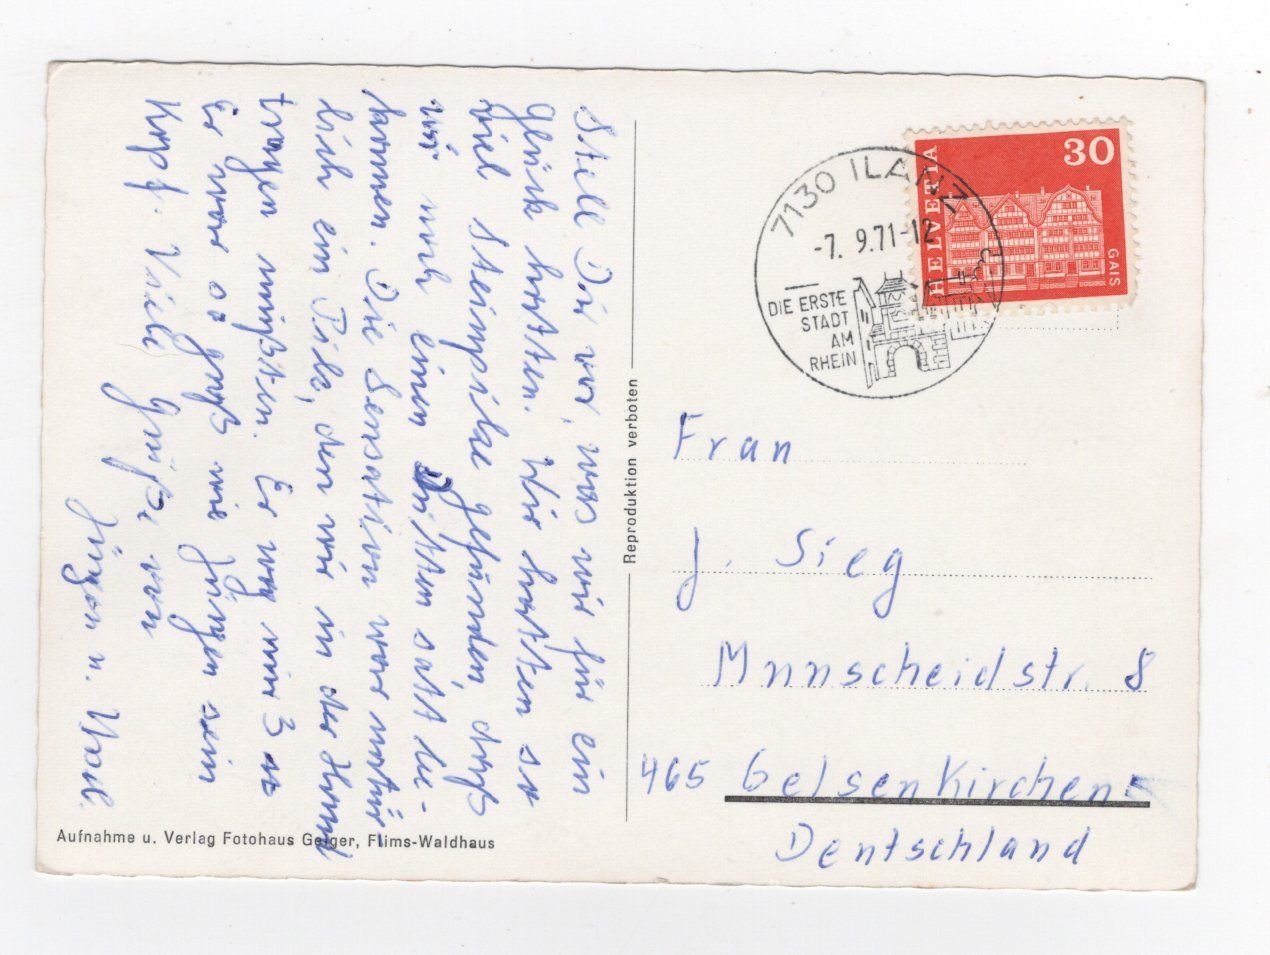 Stell Dir vor, was wir für ein
Glück hatten. Wir hatten so
viel Steinpilze gefunden, daß
wir noch einen Dritten satt be-
kommen. Die Sensation war natür-
lich ein Pilz, den wir in der Hand
tragen mußten. Er wog 3
Er war so groß wie Jürgen sein
Kopf. Viele Grüße von
Jürgen u.
Aufnahme u. Verlag Fotohaus Geiger, Flims-Waldhaus
Reproduktion verboten
7130 ILANZ
-7. 9.71-12
DIE ERSTE
STADT
AM
RHEIN
HELVETIA
30
GAIS
Frau
J. Sieg
Munscheidstr. 8
465 Gelsenkirchen
Deutschland